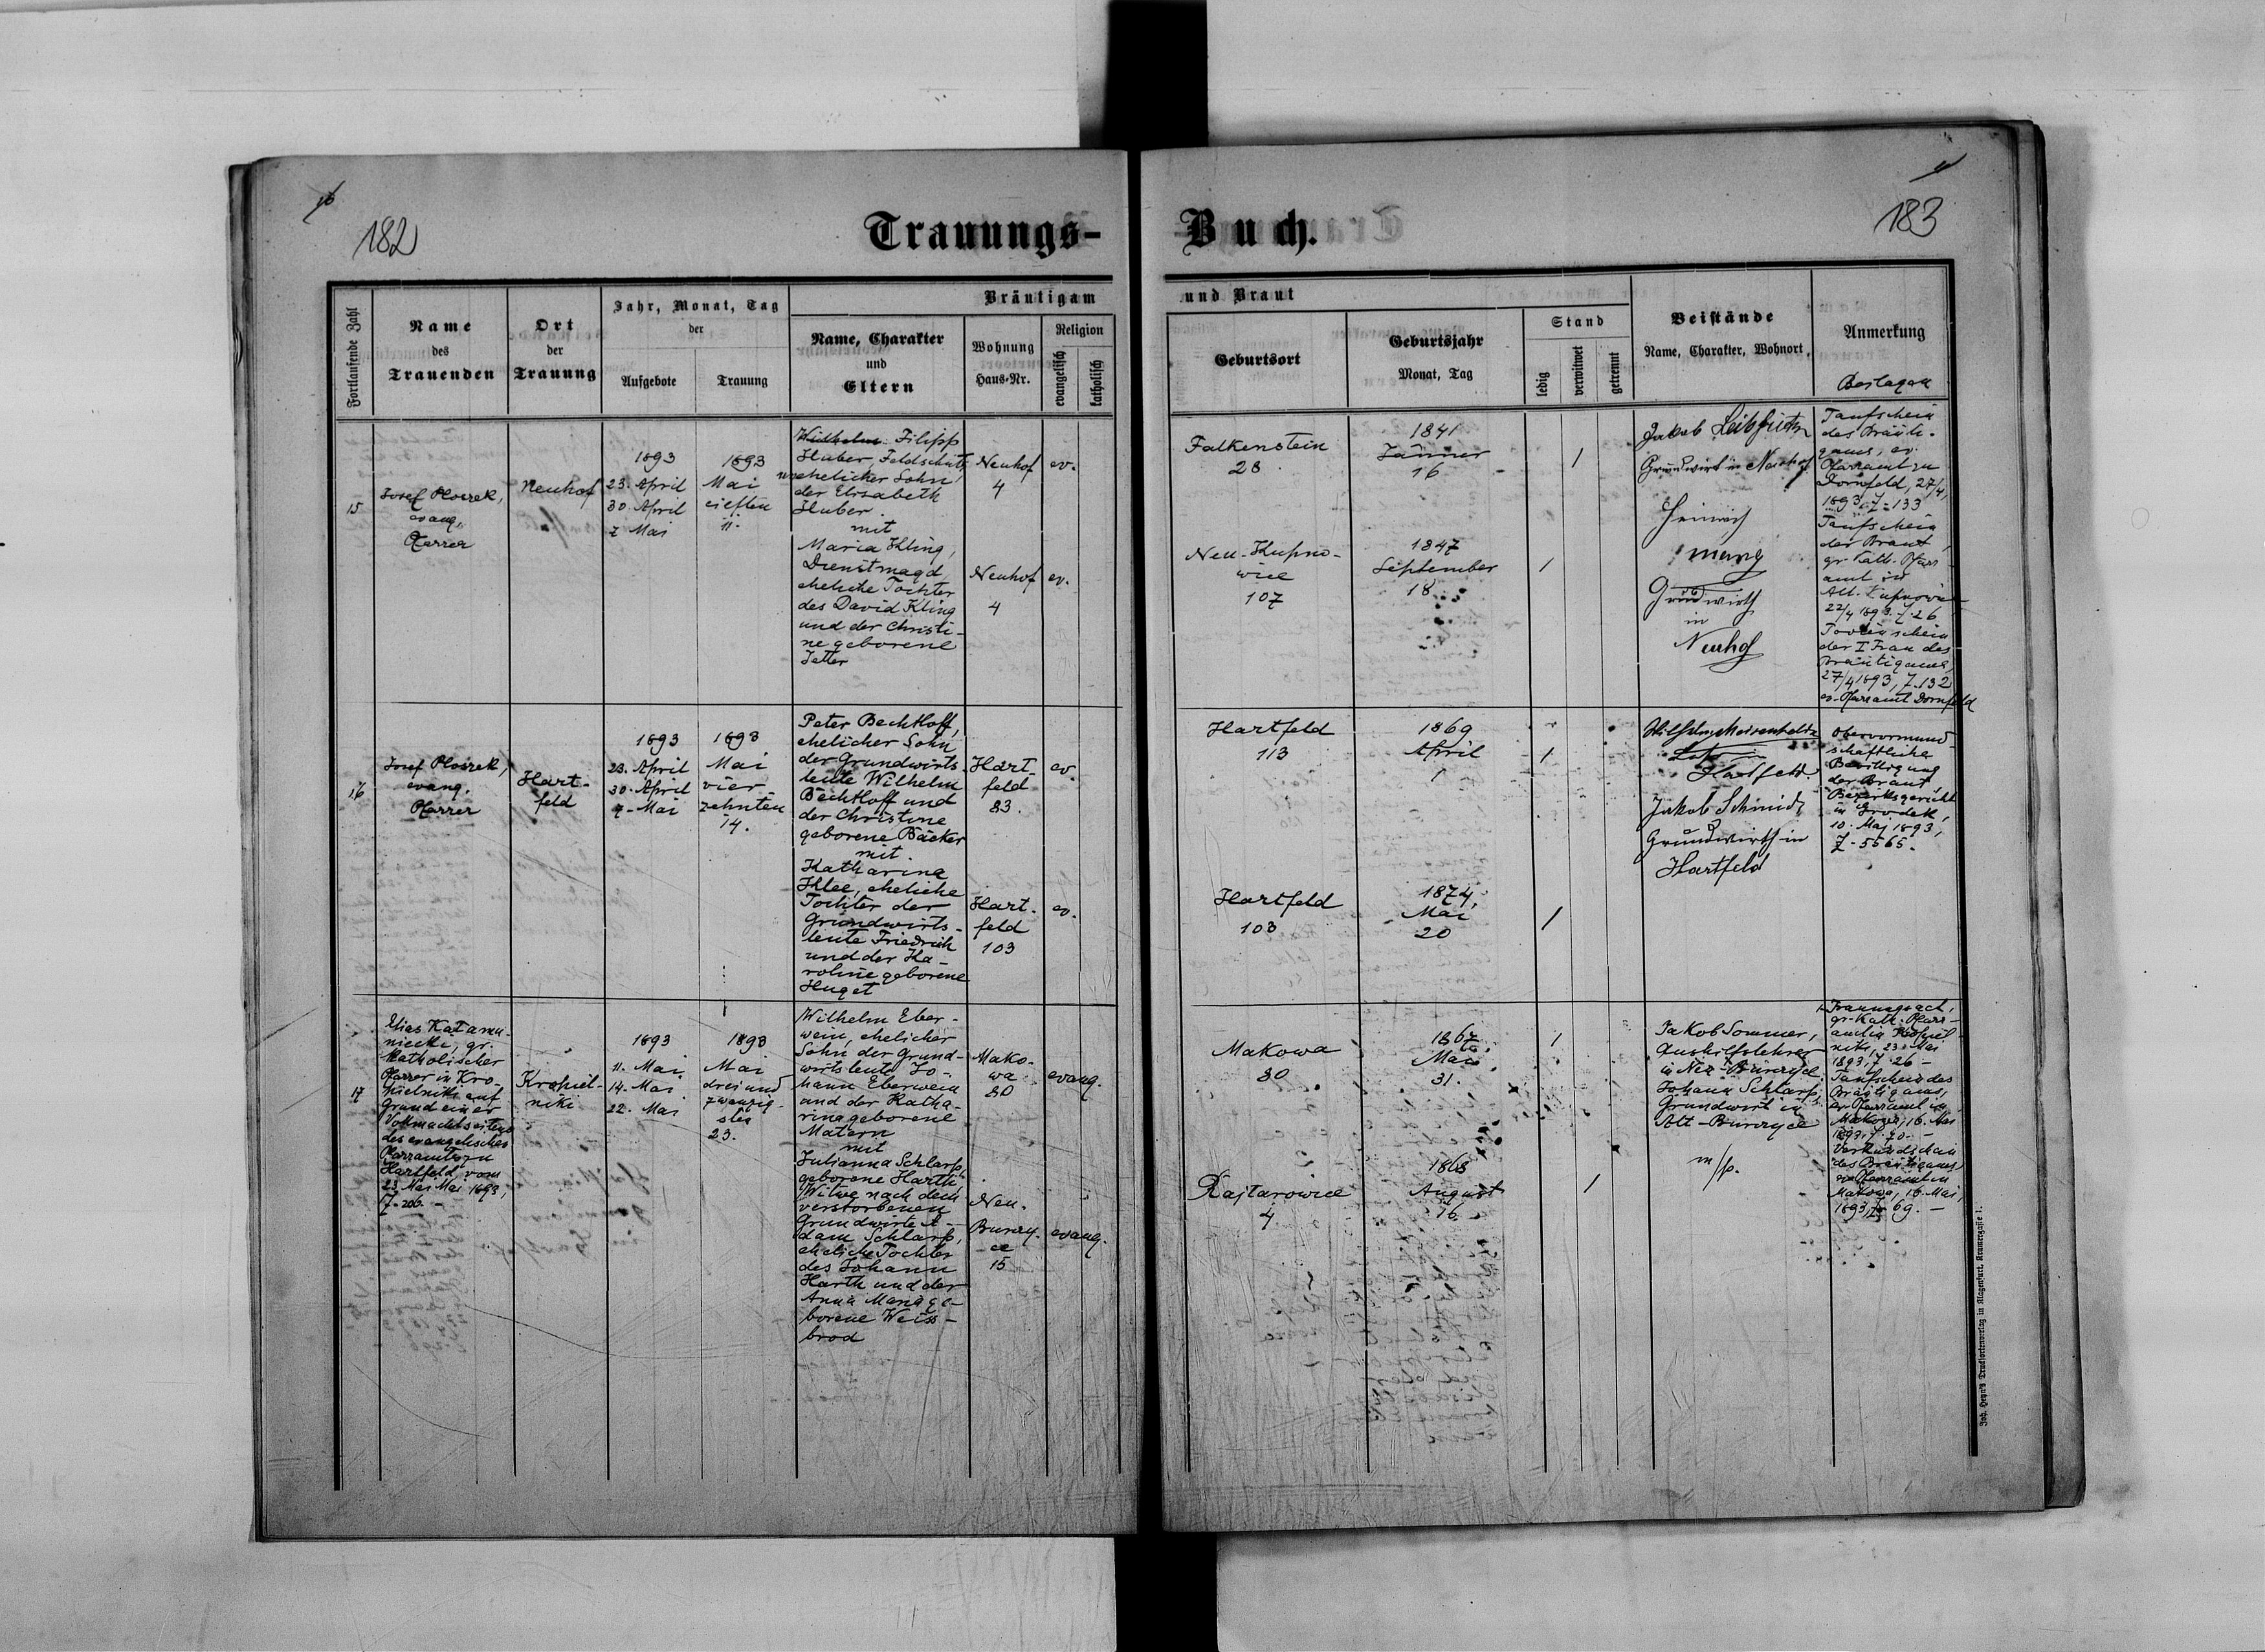 182
Trauungs-
Fortlaufende Zahl
Name
des
Trauenden
Ort
der
Trauung
Jahr, Monat, Tag
der
Aufgebote
Trauung
Bräutigam
Name, Charakter
und
Eltern
Wohnung
Haus-Nr.
Religion
evangelisch
katholisch
15
Josef Ploszek,
evang.
Pfarrer
Neuhof
1893
23. April
30. April
7 Mai
1893
Mai
eilften
11.
Wilhelm Filipp
Huber, Feldschütz,
unehelicher Sohn
der Elisabeth
Huber.
mit
Maria Kling,
Dienstmagd
eheliche Tochter
des David Kling
und der Christi-
ne geborene
Jetter
Neuhof
4
ev.
Neuhof
4
ev.
16
Josef Ploszek,
evang.
Pfarrer
Hart-
feld
1893
23. April
30. April
7. Mai
1893
Mai
vier-
zehnten
14.
Peter Bechtloff,
ehelicher Sohn
der Grundwirts-
leute Wilhelm
Bechtloff und
der Christine
geborene Bäcker
mit.
Katharina
Klee, eheliche
Tochter der
Grundwirts-
leute Friedrich
und der Ka-
roline geborene
Huget
Hart-
feld
83.
ev.
Hart-
feld
103
ev.
17
Elias
gr.
katholischer
Pfarrer in Kro-
pielniki auf
Grund einer
des evangelischen
Pfarramtes zu
Hartfeld vom
23 Mai Mai 1893,
Z. 206. -
Kropiel-
niki
1893
11. Mai
14. Mai
22. Mai
1893
Mai
drei und
zwanzig-
sten
23.
Wilhelm Eber-
wein, ehelicher
Sohn der Grund-
wirtsleute Jo-
hann Eberwein
und der Katha-
rina geborene
Matern
mit
Julianna Schlarp,
geborene Harth,
Witwe nach dem
verstorbenen
Grundwirte A-
dam Schlarp,
eheliche Tochter
des Johann
Harth und der
Anna Maria ge-
borene Weiss-
brod
Mako-
wa
80
evang.
Neu-
Burczy-
ce
15
evang.
183
Buch.
und Braut
Geburtsort
Geburtsjahr
Monat, Tag
Stand
ledig
verwitwet
getrennt
Beistände
Name, Charakter, Wohnort
Anmerkung
Beilagen
Falkenstein
28.
1841
Jänner
16
Jakob Leibfried
Grundwirt in Neuhof
Heinrich
Grundwirth
in
Neuhof
Neu-Kupno-
wice
107
1847
September
18
Taufschein
des Bräuti-
gams, ev.
Pfarramt zu
Dornfeld, 27/4
1893, Z. 133
Taufschein
der Braut,
gr. kath. Pfarr-
amt in
Alt-Kupnowice
22/4 1893. Z. 26
Todtenschein
der I Frau des
Bräutigams,
27/4 1893, Z. 132
ev. Pfarramt Dornfeld
Hartfeld
113
1869
April
1
Hartfeld.
Jakob Schmidt
Grundwirth in
Hartfeld
Obervormund-
schaftliche
Bewilligung
der Braut
Bezirksgericht
in Grodek,
10. Mai 1893,
Z. 5565.
Hartfeld
103
1874,
Mai
20
Makowa
80
1867
Mai
31.
Jakob Sommer,
Aushilfslehrer
in Neu-Burczyce
Johann Schlarp
Grundwirt in
Alt-Burczyce
m/p.
Rajtarowice
4
1868
August
16
Trauungsact,
gr. kath. Pfarr-
amt in Kropiel-
niki, 23. Mai
1893, Z. 26 -
Taufschein des
Bräutigams,
ev. Pfarramt in
Makowa, 16. Mai
1893, Z. 70. -
Verkündschein
des Bräutigams
ev. Pfarramt in
Makowa, 16. Mai,
1893, Z. 69. -
Joh. Heyn's Drucksortenverlag in Klagenfurt, Kramergasse 1.